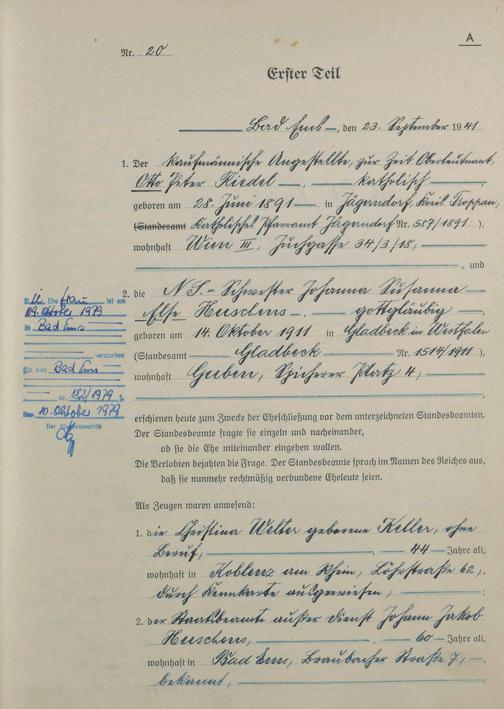 A
Nr. 20
Erster Teil
Bad Ems, den 23. September 1941
1. Der kaufmännische Angestellte, zur Zeit Oberleutnant,
Otto Peter Riedel, katholisch
geboren am 28. Juni 1891 in Jägerndorf, Kreis Troppau,
(Standesamt Katholisches Pfarramt Jägerndorf Nr. 587/1891 ).
wohnhaft Wien III, Juchgasse 34/3/18,
, und
2. die NS-Schwester Johanna Susanna
Else Heuschens gottgläubig
geboren am 14. Oktober 1911 in Gladbeck in Westfalen
(Standesamt Gladbeck Nr. 1514/1911 ).
wohnhaft Guben, Spicherer Platz 4,
erschienen heute zum Zwecke der Eheschließung vor dem unterzeichneten Standesbeamten.
Der Standesbeamte fragte sie einzeln und nacheinander,
ob sie die Ehe miteinander eingehen wollen.
Die Verlobten bejahten die Frage. Der Standesbeamte sprach im Namen des Reiches aus,
daß sie nunmehr rechtmäßig verbundene Eheleute seien.
Als Zeugen waren anwesend:
1. die Christina Welter geborene Keller, ohne
Beruf, 44 Jahre alt,
wohnhaft in Koblenz am Rhein, Löhrstraße 62,
durch Kennkarte ausgewiesen, ;
2. der Staatsbeamte außer Dienst Johann Jakob
Heuschens, 60 Jahre alt,
wohnhaft in Bad Ems, Braubacher Straße 7,
bekannt,
Die Ehefrau ist am
09. Oktober 1979
in Bad Ems
verstorben
Bad Ems
Nr. 182/1979
10. Oktober 1979
Der Standesbeamte